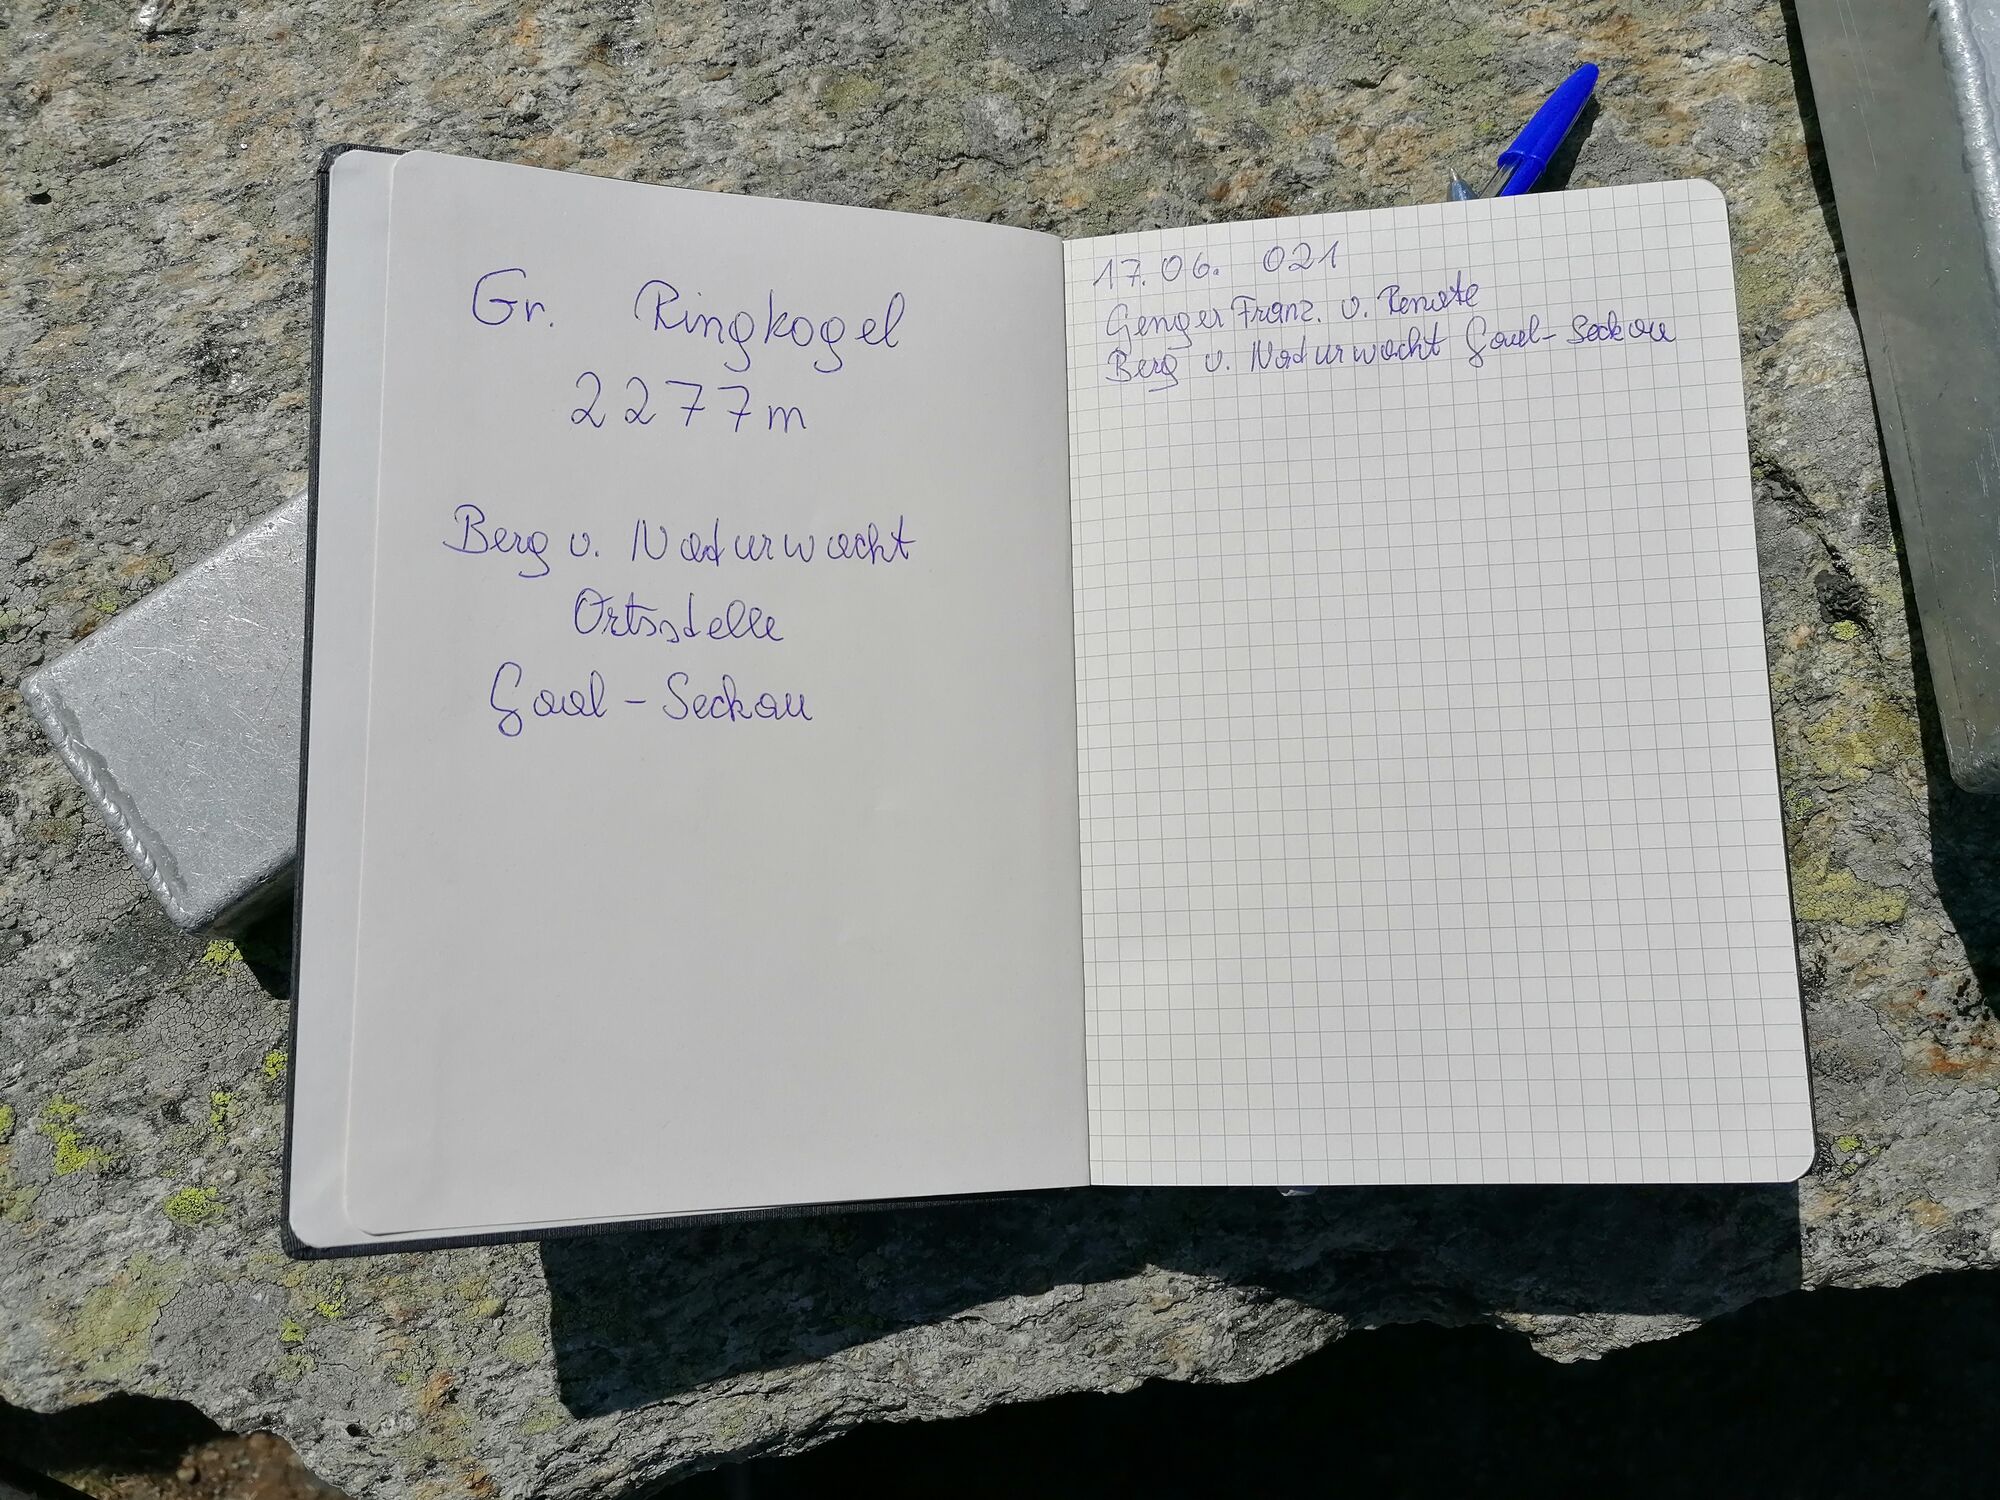 Gr. Ringkogel
2277m
Berg u. Naturwacht
Ortsstelle
Gaal - Seckau
17.06. 021
Genger Franz. u. Renate
Berg u. Naturwacht Gaal - Seckau